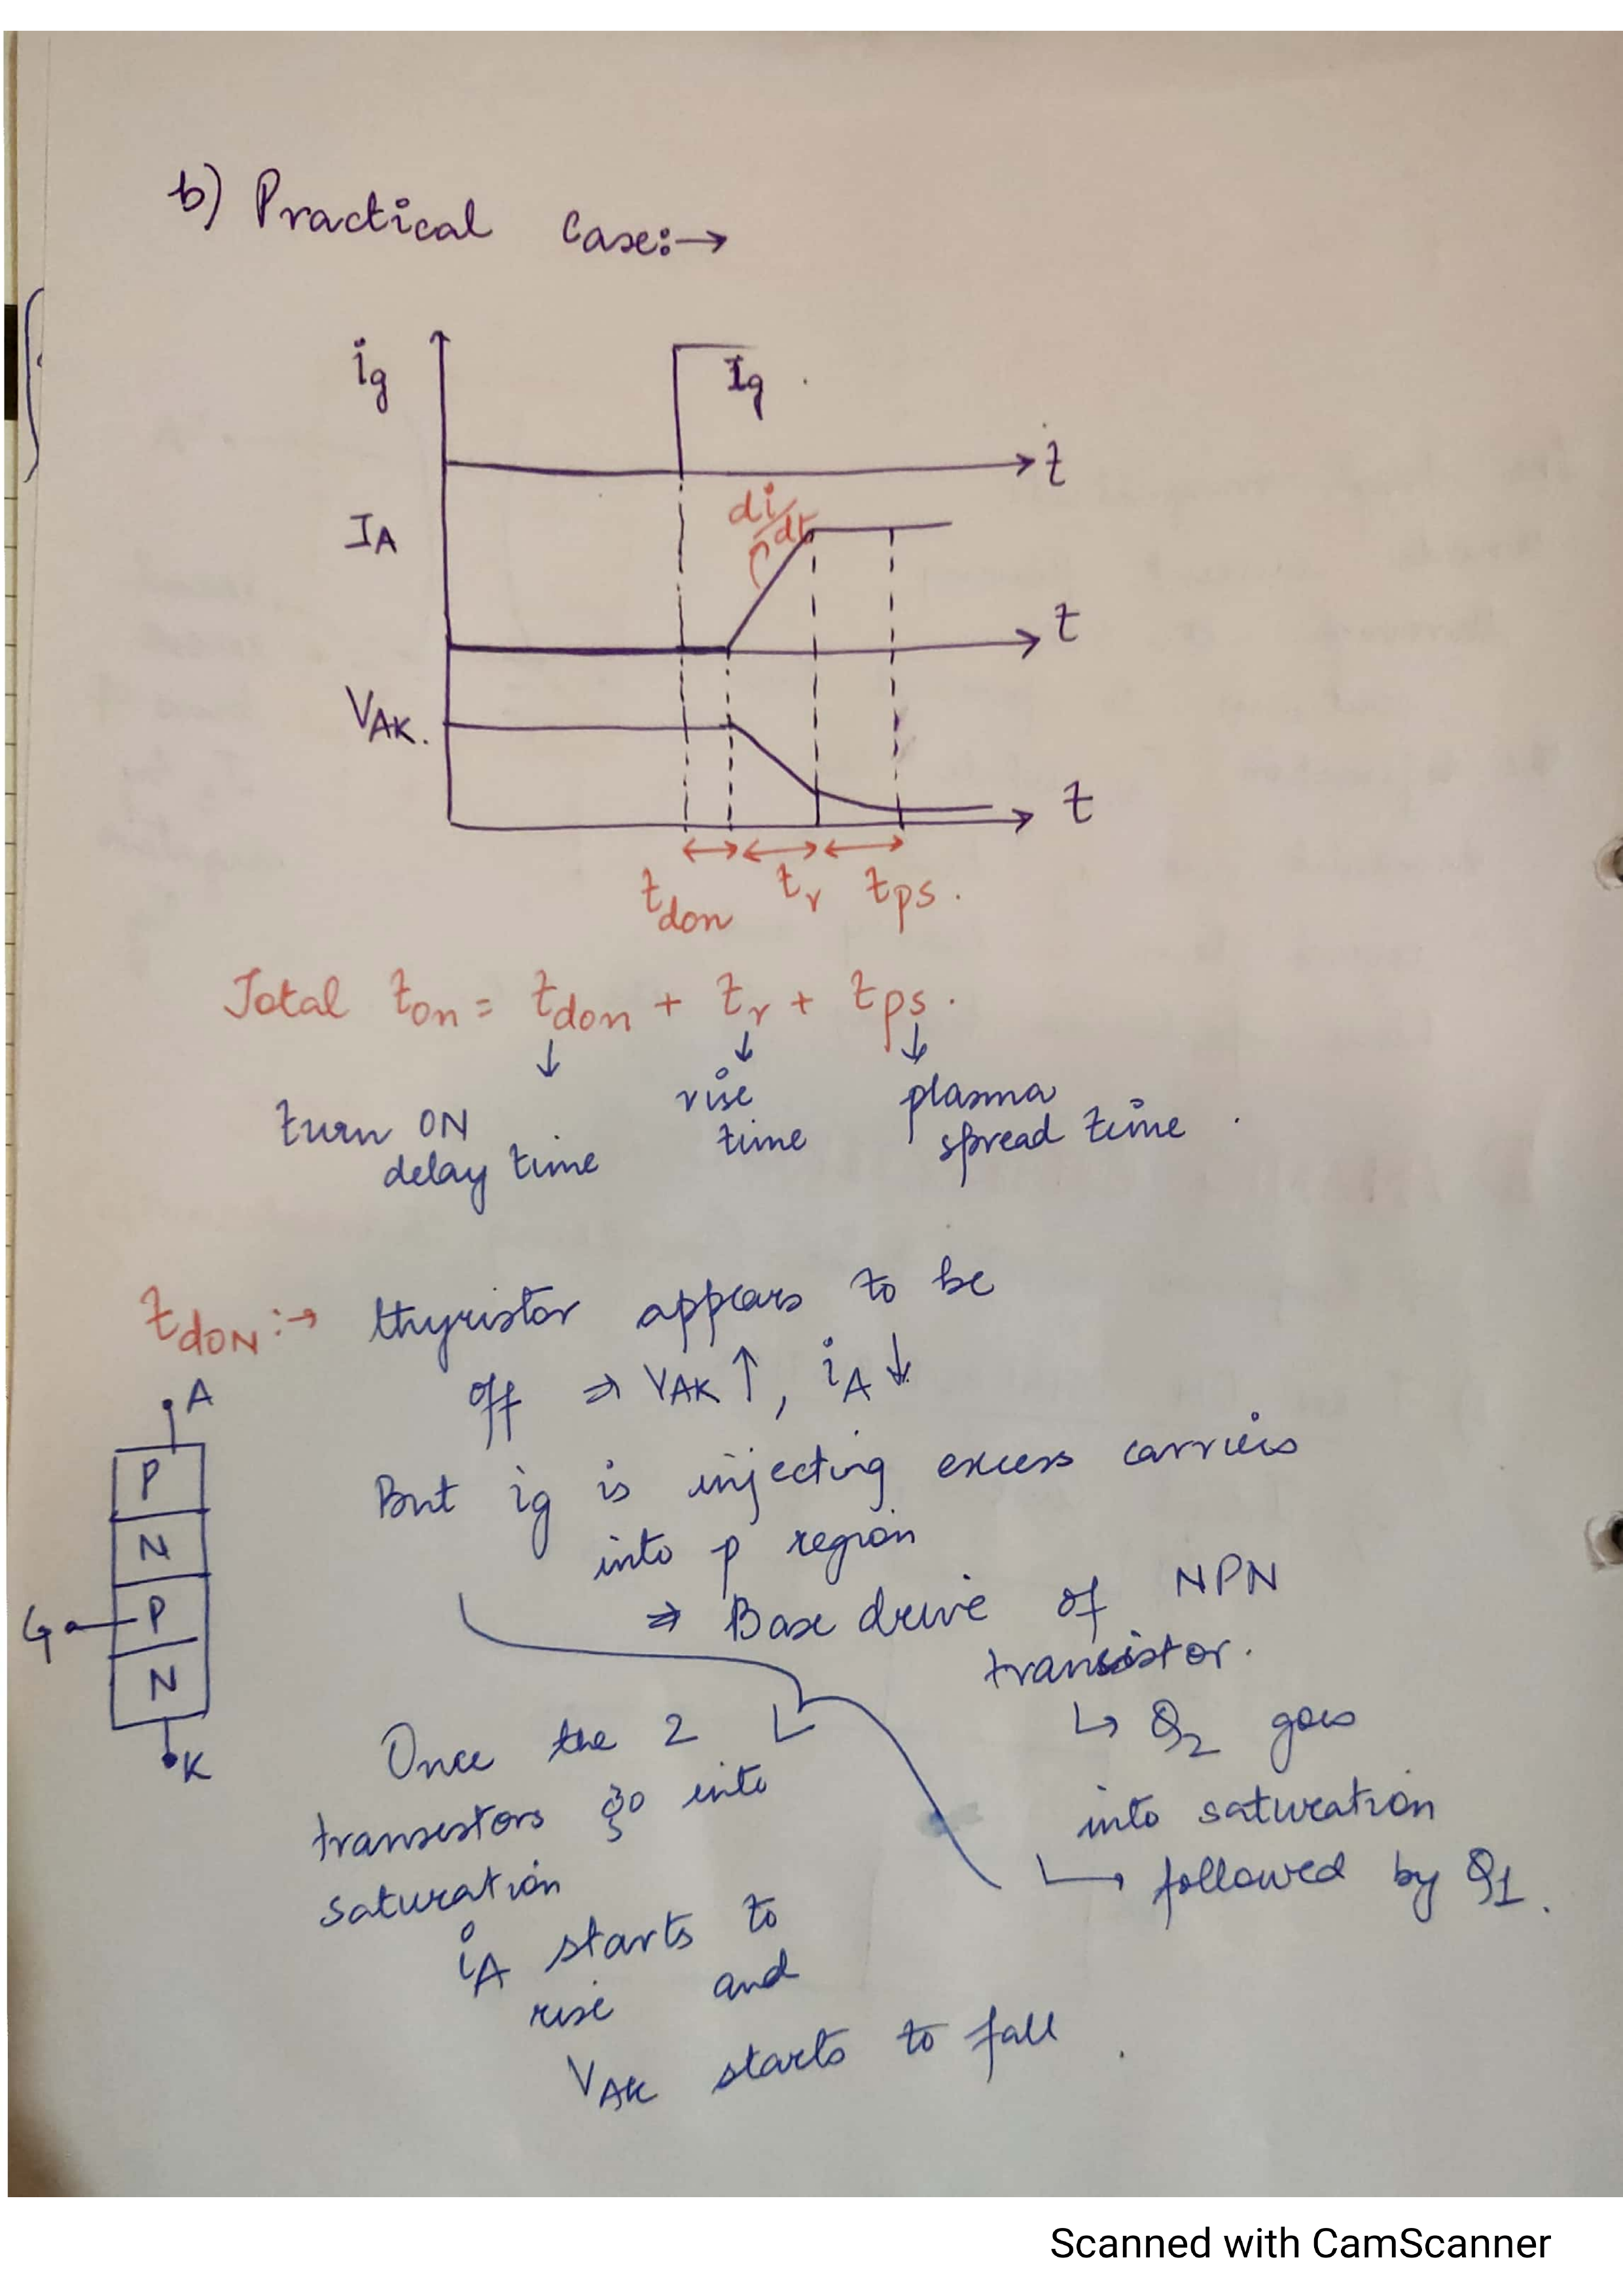 b) Practical Case:→
ig
Ig
t
di/dt
IA
t
VAK.
t
tdon tr tps.
Total ton = tdon + tr + tps.
↓ ↓ ↓
turn ON delay time
rise time
plasma spread time
tdON:→ thyristor appears to be
off ⇒ VAK ↑, iA ↓
A
P
N
G
P
N
K
But ig is injecting excess carriers
into p region
⇒ Base drive of NPN
transistor.
↳ Q2 goes
into saturation
↳ followed by Q1.
Once the 2
transistors go into
saturation
iA starts to
rise and
VAK starts to fall.
Scanned with CamScanner